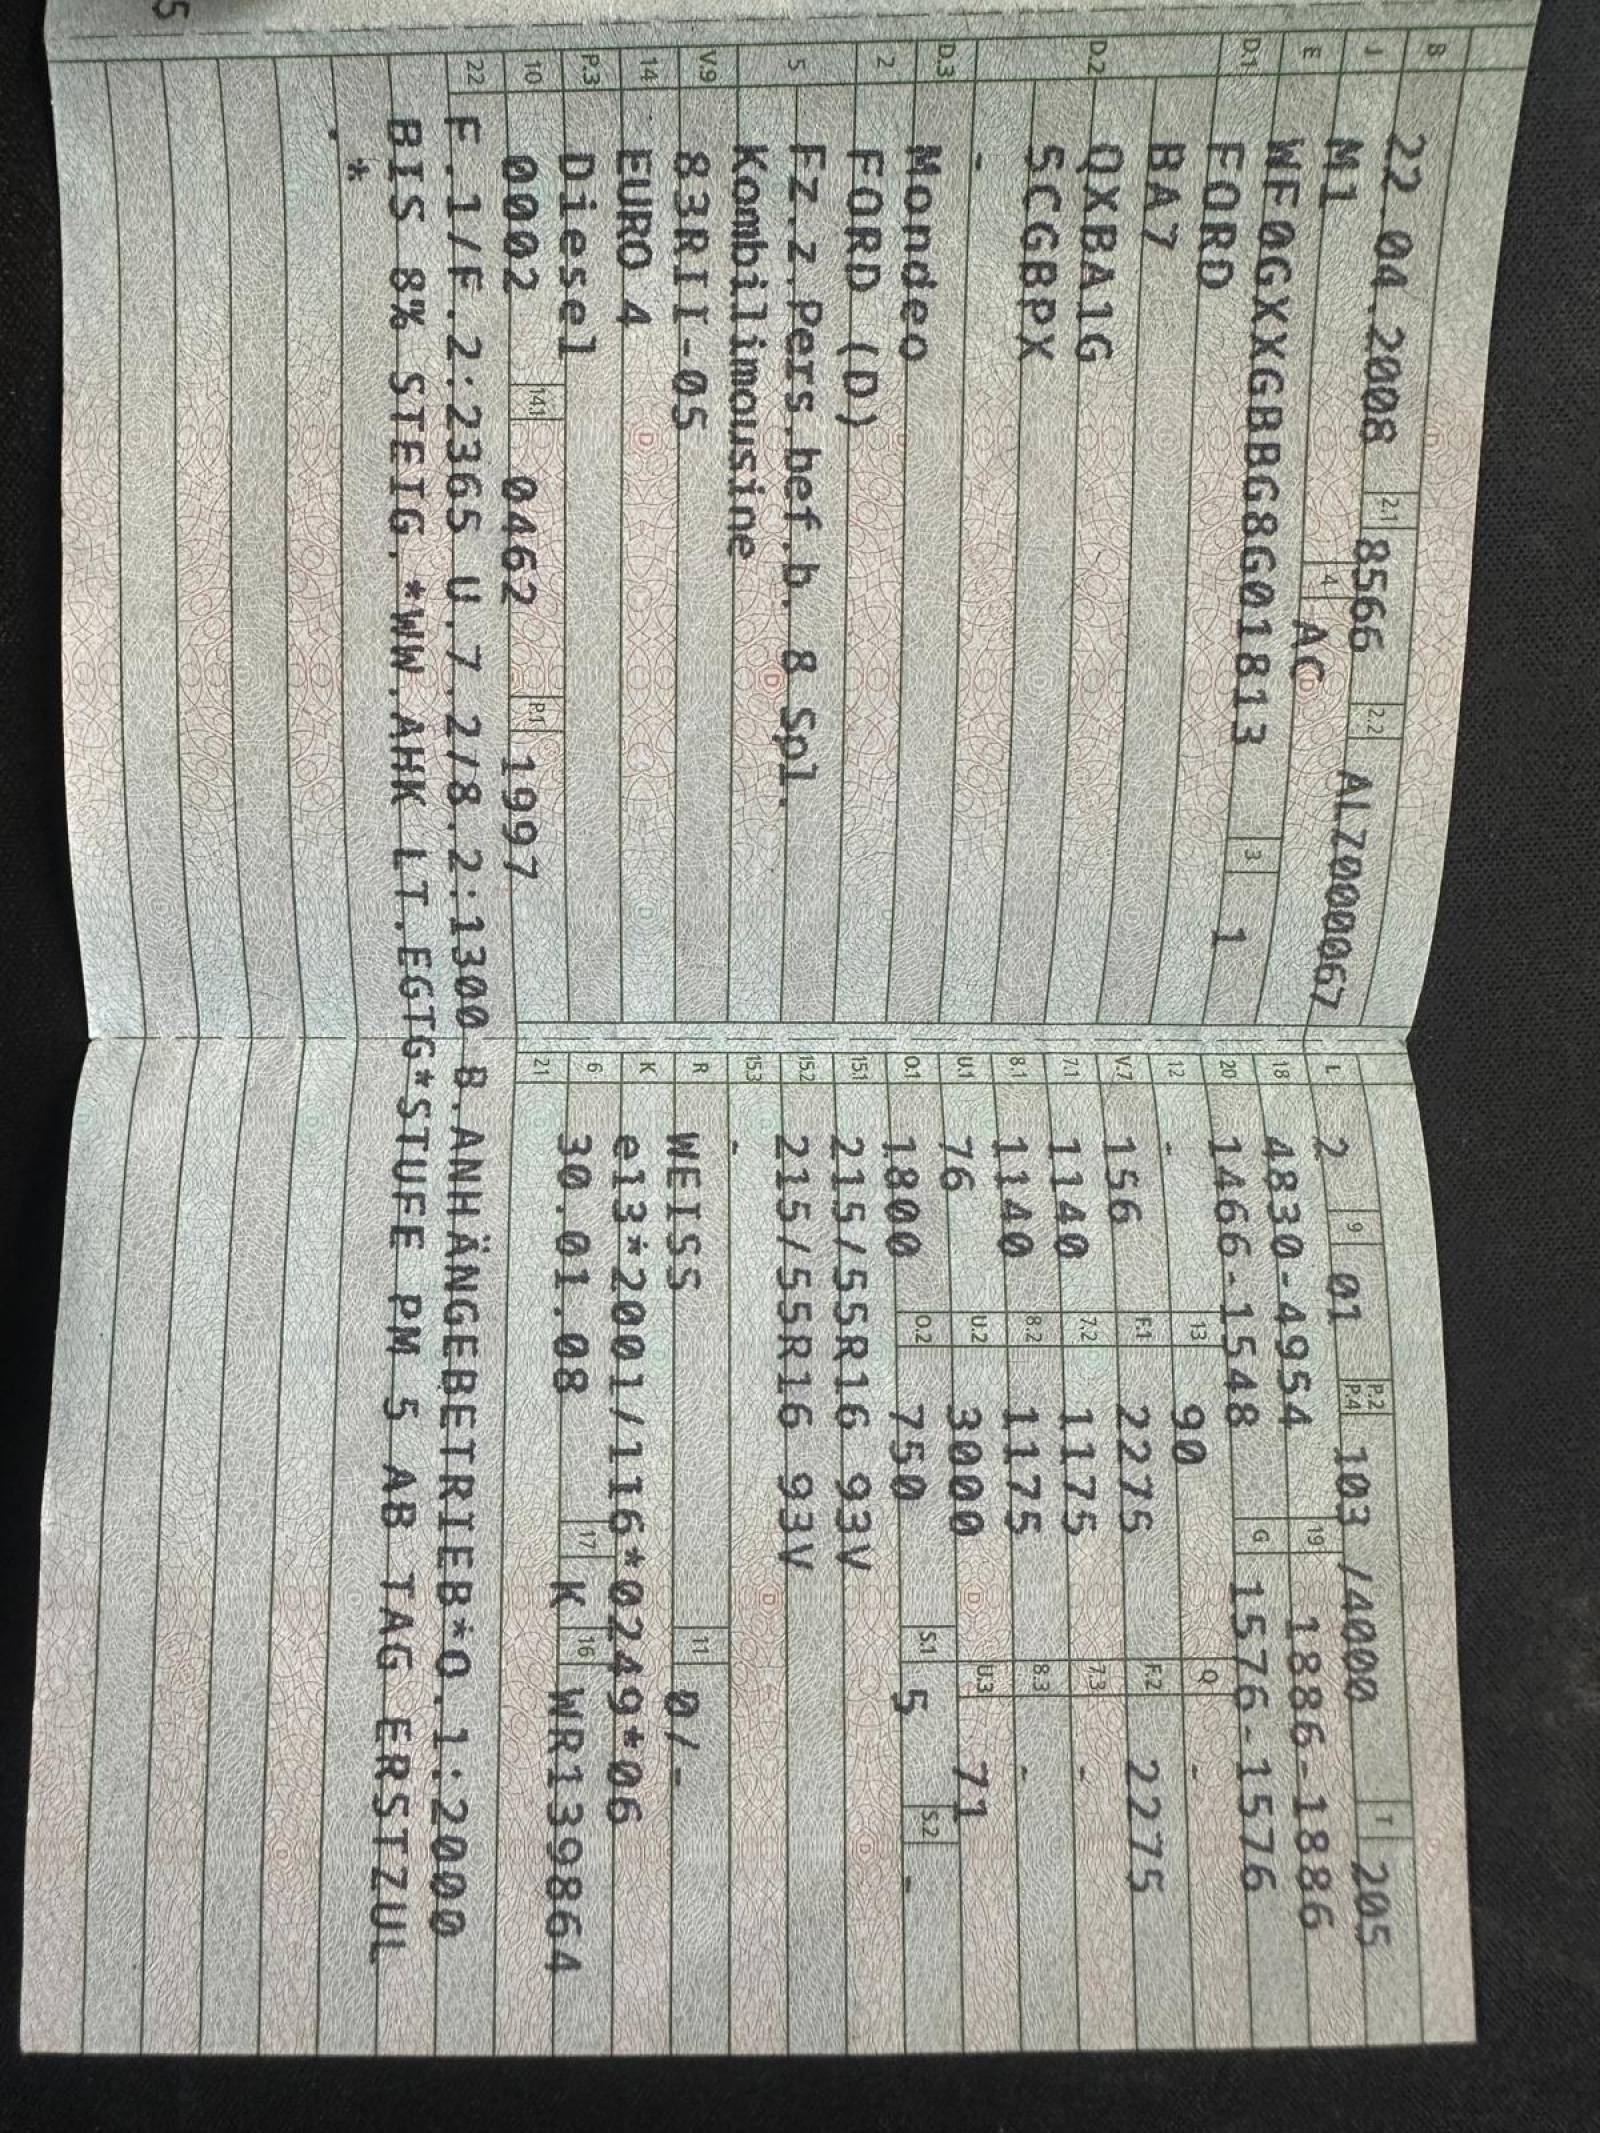 B 22.04.2008 2.1 8566 2.2 ALZ000067
J M1 4 AC
E WF0GXXGBBG8G01813 3 1
D.1 FORD
BA7
D.2 QXBA1G
5CGBPX
-
D.3 Mondeo
2 FORD (D)
5 Fz.z.Pers.bef.b. 8 Spl.
Kombilimousine
V.9 83RII-05
14 EURO 4
P.3 Diesel
10 0002 14.1 0462 P.1 1997
L 2 9 01 P.2 P.4 103 /4000 T 205
18 4830-4954 19 1886-1886
20 1466-1548 G 1576-1576
12 - 13 90 Q -
V.7 156 F.1 2275 F.2 2275
7.1 1140 7.2 1175 7.3 -
8.1 1140 8.2 1175 8.3 -
U.1 76 U.2 3000 U.3 71
O.1 1800 O.2 750 S.1 5 S.2 -
15.1 215/55R16 93V
15.2 215/55R16 93V
15.3 -
R WEISS 11 0/-
K e13*2001/116*0249*06
6 30.01.08 17 K 16 WR139864
21
22 F.1/F.2:2365 U.7.2/8.2:1300 B.ANHÄNGEBETRIEB*O.1:2000
BIS 8% STEIG.*WW.AHK LT.EGTG*STUFE PM 5 AB TAG ERSTZUL
.*